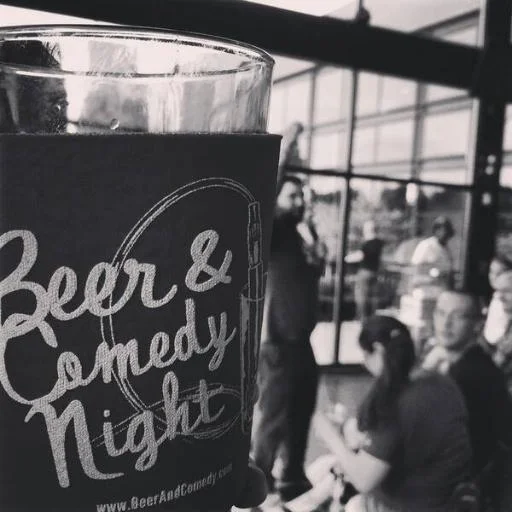 Beer &
Comedy
Night
www.BeerAndComedy.com